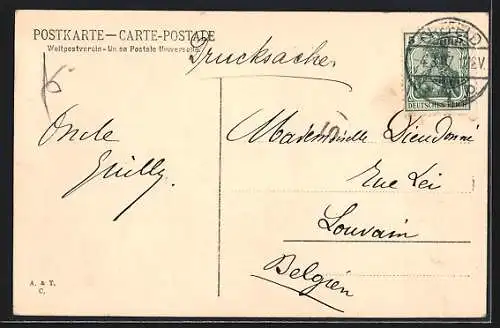 POSTKARTE – CARTE-POSTALE
Weltpostverein - Union Postale Universelle
Drucksache
CREFELD
DEUTSCHES REICH
Oncle
Guilly.
Mademoiselle Dieudonné
Rue Lei
Louvain
Belgien
A. & T.
C.